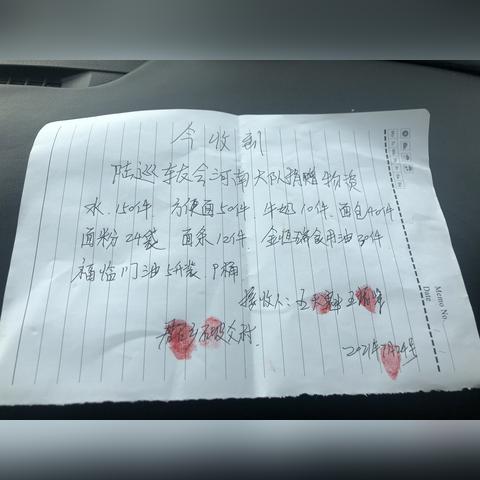 今收到
陆巡车友会河南大队捐赠物资
水 150件 方便面50件 牛奶10件 面包40件
面粉24袋 面条12件 金恒瑞食用油30件
福临门油5升装 9桶
接收人:王 王
村
2021年7月24号
Memo No.
Date